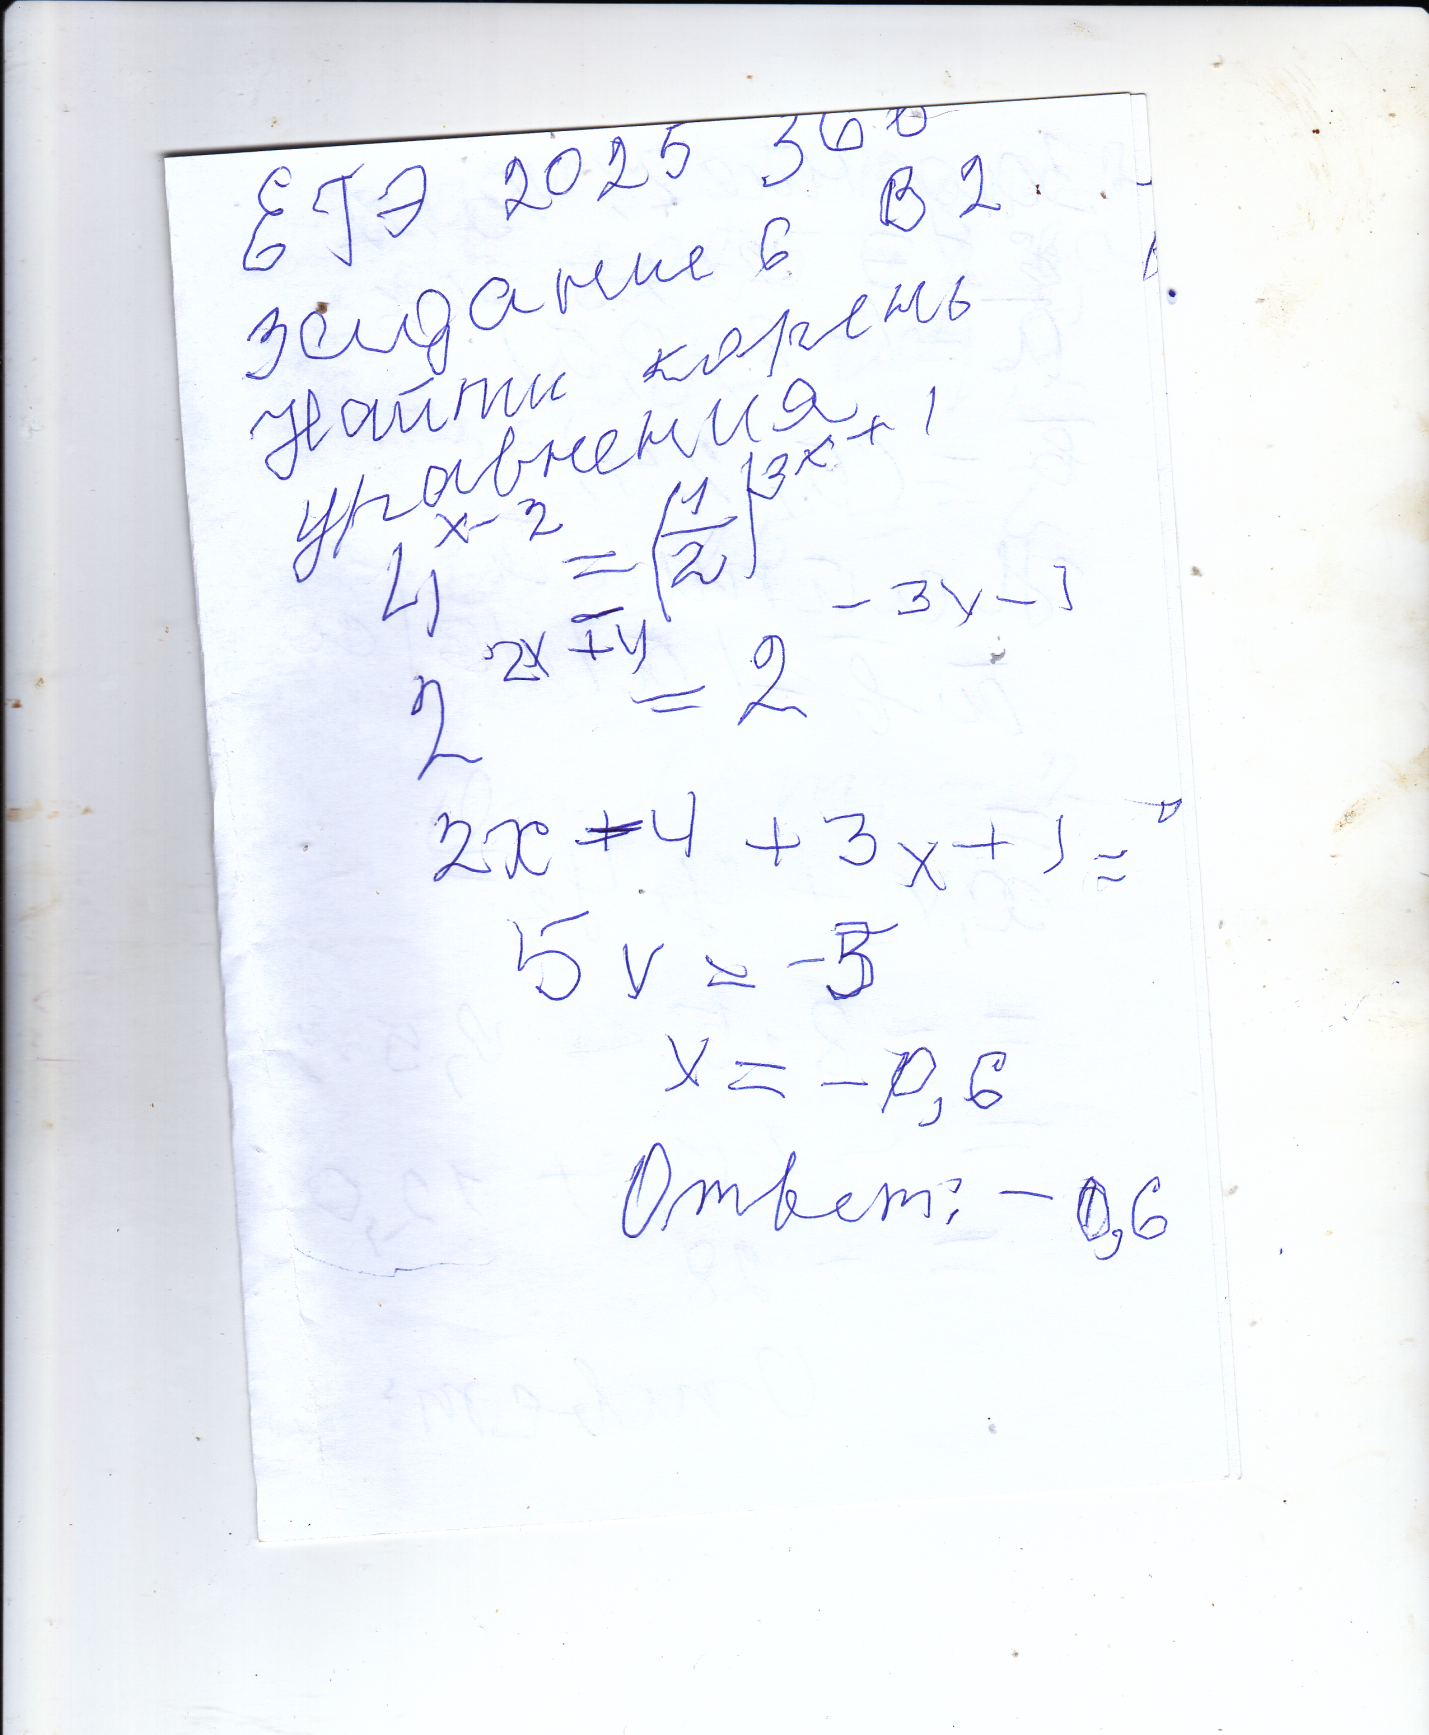 ЕГЭ 2025 36 в
В 2
задание 6
Найти корень
уравнения
4^(x-2) = (1/2)^(3x+1)
2^(2x+4) = 2^(-3x-1)
2x-4+3x+1=0
5x = -3
x = -0,6
Ответ: -0,6